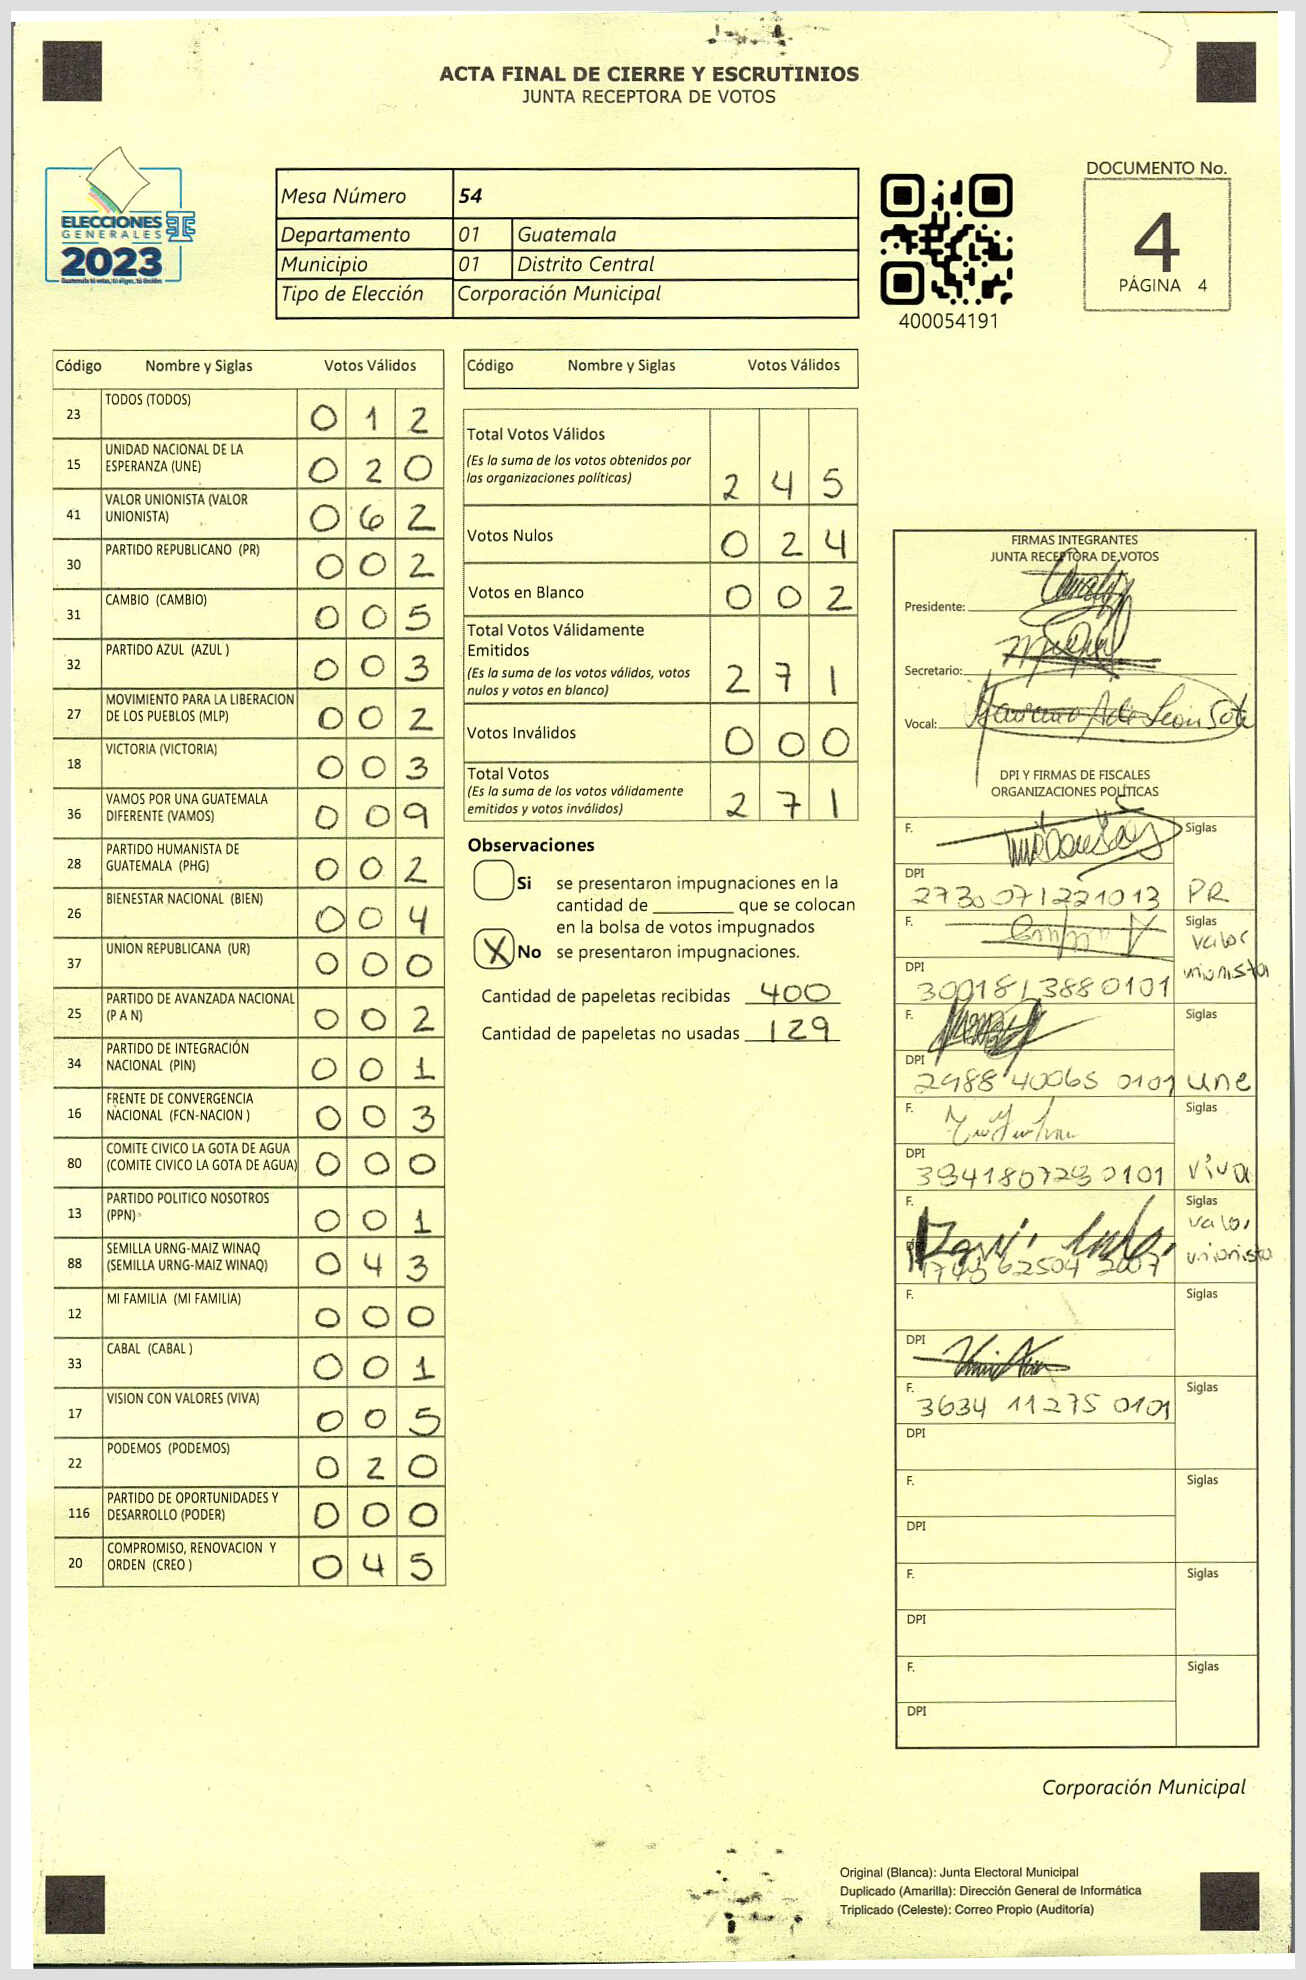 ACTA FINAL DE CIERRE Y ESCRUTINIOS
JUNTA RECEPTORA DE VOTOS
ELECCIONES
GENERALES
2023
Guatemala tú votas, tú eliges, tú decides
Mesa Número 54
Departamento 01 Guatemala
Municipio 01 Distrito Central
Tipo de Elección Corporación Municipal
400054191
DOCUMENTO No.
4
PÁGINA 4
Código Nombre y Siglas Votos Válidos
23 TODOS (TODOS) 0 1 2
15 UNIDAD NACIONAL DE LA
ESPERANZA (UNE) 0 2 0
41 VALOR UNIONISTA (VALOR
UNIONISTA) 0 6 2
30 PARTIDO REPUBLICANO (PR) 0 0 2
31 CAMBIO (CAMBIO) 0 0 5
32 PARTIDO AZUL (AZUL ) 0 0 3
27 MOVIMIENTO PARA LA LIBERACION
DE LOS PUEBLOS (MLP) 0 0 2
18 VICTORIA (VICTORIA) 0 0 3
36 VAMOS POR UNA GUATEMALA
DIFERENTE (VAMOS) 0 0 9
28 PARTIDO HUMANISTA DE
GUATEMALA (PHG) 0 0 2
26 BIENESTAR NACIONAL (BIEN) 0 0 4
37 UNION REPUBLICANA (UR) 0 0 0
25 PARTIDO DE AVANZADA NACIONAL
(P A N) 0 0 2
34 PARTIDO DE INTEGRACIÓN
NACIONAL (PIN) 0 0 1
16 FRENTE DE CONVERGENCIA
NACIONAL (FCN-NACION ) 0 0 3
80 COMITE CIVICO LA GOTA DE AGUA
(COMITE CIVICO LA GOTA DE AGUA) 0 0 0
13 PARTIDO POLITICO NOSOTROS
(PPN) 0 0 1
88 SEMILLA URNG-MAIZ WINAQ
(SEMILLA URNG-MAIZ WINAQ) 0 4 3
12 MI FAMILIA (MI FAMILIA) 0 0 0
33 CABAL (CABAL ) 0 0 1
17 VISION CON VALORES (VIVA) 0 0 5
22 PODEMOS (PODEMOS) 0 2 0
116 PARTIDO DE OPORTUNIDADES Y
DESARROLLO (PODER) 0 0 0
20 COMPROMISO, RENOVACION Y
ORDEN (CREO ) 0 4 5
Código Nombre y Siglas Votos Válidos
Total Votos Válidos
(Es la suma de los votos obtenidos por
las organizaciones políticas) 2 4 5
Votos Nulos 0 2 4
Votos en Blanco 0 0 2
Total Votos Válidamente
Emitidos
(Es la suma de los votos válidos, votos
nulos y votos en blanco) 2 7 1
Votos Inválidos 0 0 0
Total Votos
(Es la suma de los votos válidamente
emitidos y votos inválidos) 2 7 1
Observaciones
Si se presentaron impugnaciones en la
cantidad de ________ que se colocan
en la bolsa de votos impugnados
X No se presentaron impugnaciones.
Cantidad de papeletas recibidas 400
Cantidad de papeletas no usadas 129
FIRMAS INTEGRANTES
JUNTA RECEPTORA DE VOTOS
Presidente:
Secretario:
Vocal:
DPI Y FIRMAS DE FISCALES
ORGANIZACIONES POLÍTICAS
F. Siglas
DPI
2730071221013 PR
F. Siglas
valor
DPI unionista
3001813880101
F. Siglas
DPI
2988 40065 0101 une
F. Siglas
DPI
3941807290101 viva
F. Siglas
valor
unionista
F. Siglas
DPI
F. Siglas
3634 11275 0101
DPI
F. Siglas
DPI
F. Siglas
DPI
F. Siglas
DPI
Corporación Municipal
Original (Blanca): Junta Electoral Municipal
Duplicado (Amarilla): Dirección General de Informática
Triplicado (Celeste): Correo Propio (Auditoría)